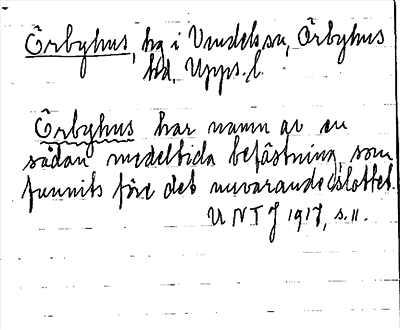 Örbyhus, hg i Vendels sn, Örbyhus
hd, Upps. l.
Örbyhus har namn av en
sådan medeltida befästning, som
funnits före det nuvarande slottet.
UNTJ 1917, s. 11.